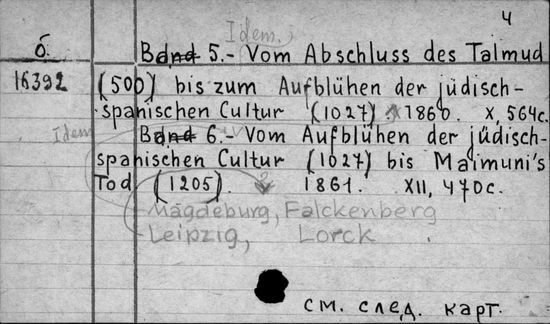 4
Idem.
б. Band 5.- Vom Abschluss des Talmud
16392 (500) bis zum Aufblühen der jüdisch-
spanischen Cultur (1027). 1860. X, 564c.
Idem Band 6.- Vom Aufblühen der jüdisch-
spanischen Cultur (1027) bis Maimuni's
Tod (1205). 1861. XII, 470c.
Magdeburg, Falckenberg
Leipzig, Lorck
см. след. карт.